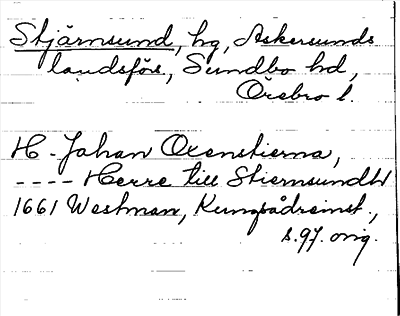 Stjärnsund, hg, Askersunds
landsförs., Sundbo hd,
Örebro l.
H. Johan Oxenstierna,
---- Herre till Stiernsundh
1661 Westman, Kungsådreinst.,
s.97. orig.